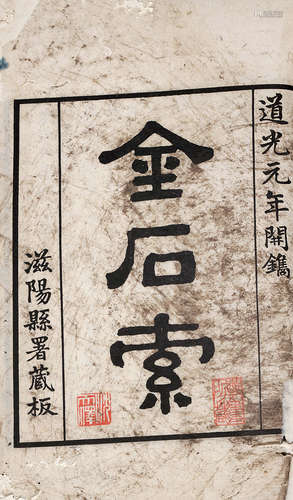 道光元年開鐫
金石索
滋陽縣署藏板